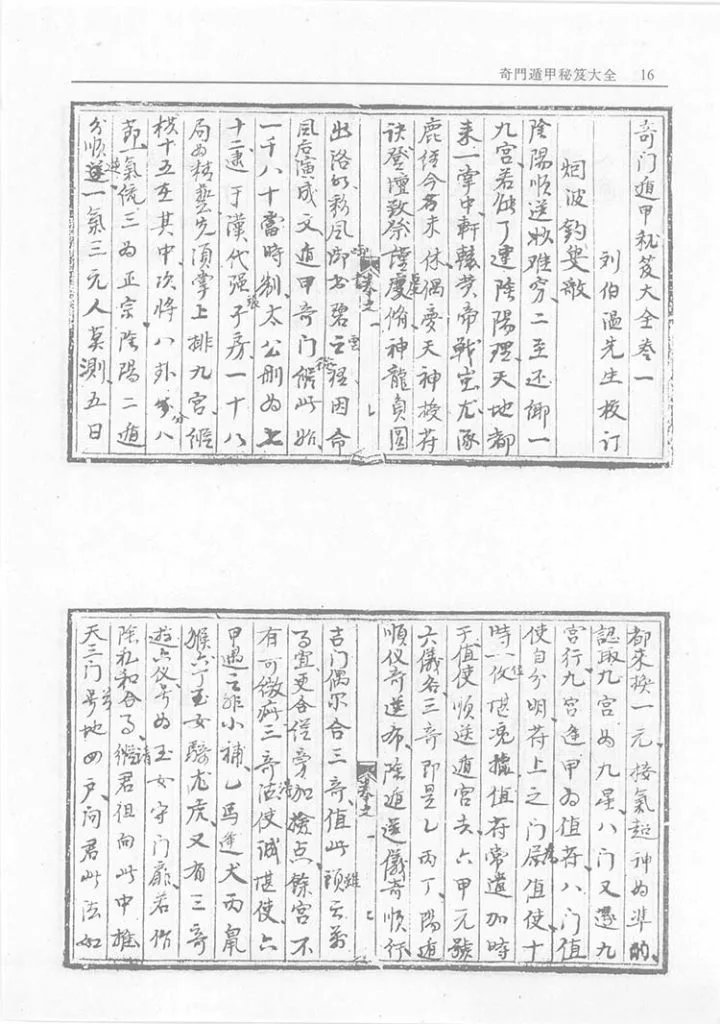 奇門遁甲秘笈大全 16
奇门遁甲秘笈大全卷一
刘伯温先生校订
烟波釣叟歌
陰陽順逆妙难穷二至还鄉一
九宫若能了達陰陽理天地都
来一掌中軒轅黄帝戰蚩尤涿
鹿経今苦未休偶夢天神授符
诀登壇致祭謹虔修神龍負图
出洛水彩凤衔书碧云裡因命
风后演成文遁甲奇门從此始
一千八十當時制太公刪为七
十二逮于漢代张子房一十八
局为精藝先須掌上排九宫縱
横十五在其中次将八卦分八
節一氣统三为正宗陰陽二遁
分順逆一氣三元人莫測五日
都来换一元接氣超神为準的
認取九宫为九星八门又逐九
宫行九宫逢甲为值符八门值
使自分明符上之门为值使十
时一位堪凭據值符常遣加時
干值使順逆遁宫去六甲元號
六儀名三奇即是乙丙丁陽遁
順仪奇逆布陰遁逆儀奇順行
吉门偶尔合三奇值此須云萬
事宜更合従旁加檢点餘宫不
可有微疵三奇得使诚堪使六
甲遇之非小補乙馬逢犬丙鼠
猴六丁玉女騎龙虎又有三奇
遊六仪号为玉女守门扉若作
陰私和合事請君但向此中推
天三门兮地四户问君此法如